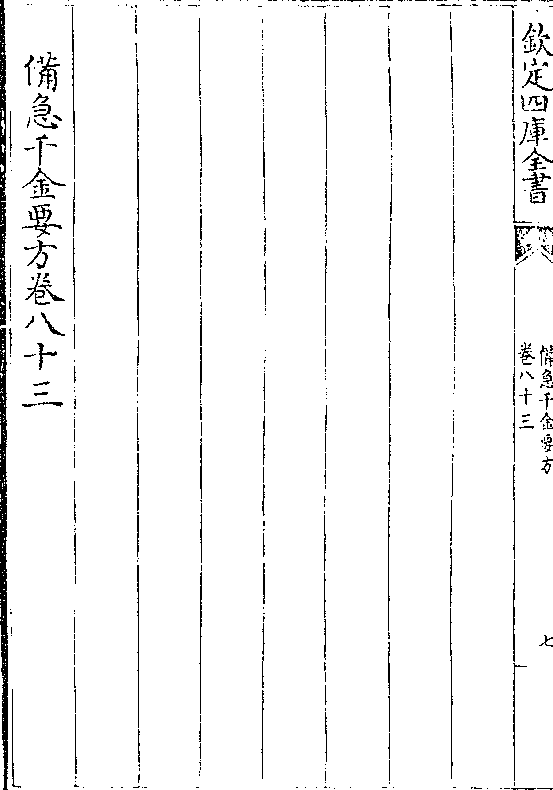 欽定四庫全書
備急千金要方
卷八十三
七
備急千金要方卷八十三